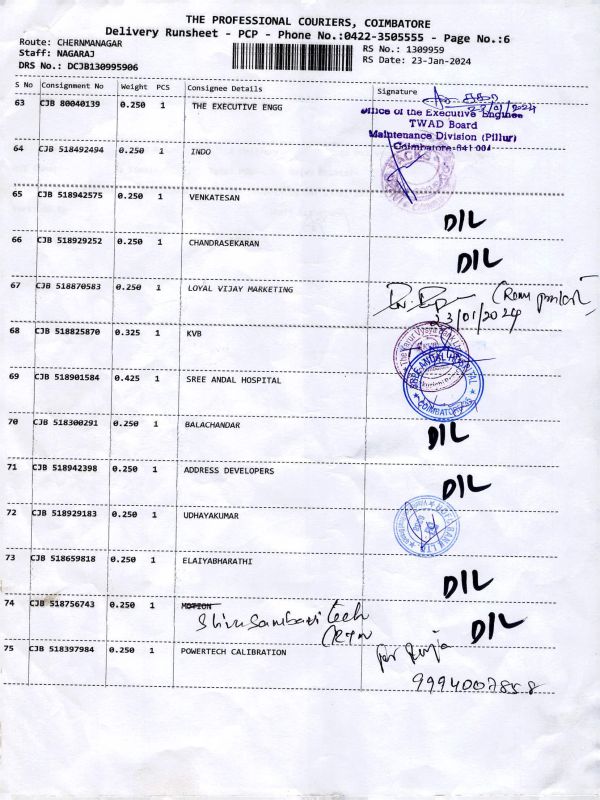 THE PROFESSIONAL COURIERS, COIMBATORE
Delivery Runsheet - PCP - Phone No.:0422-3505555 - Page No.:6
Route: CHERNMANAGAR
RS No.: 1309959
Staff: NAGARAJ
RS Date: 23-Jan-2024
DRS No.: DCJB130995906
S No Consignment No Weight PCS Consignee Details Signature
63 CJB 80040139 0.250 1 THE EXECUTIVE ENGG
23/01/2024
Office of the Executive Engineer
TWAD Board
Maintenance Division (Pillur)
Coimbatore-641 001
64 CJB 518492494 0.250 1 INDO
65 CJB 518942575 0.250 1 VENKATESAN D/L
66 CJB 518929252 0.250 1 CHANDRASEKARAN D/L
67 CJB 518870583 0.250 1 LOYAL VIJAY MARKETING
23/01/2024
68 CJB 518825870 0.325 1 KVB
The Karur Vysya Bank Ltd
69 CJB 518901584 0.425 1 SREE ANDAL HOSPITAL
SREE ANDAL HOSPITAL
COIMBATORE
70 CJB 518300291 0.250 1 BALACHANDAR D/L
71 CJB 518942398 0.250 1 ADDRESS DEVELOPERS D/L
72 CJB 518929183 0.250 1 UDHAYAKUMAR
73 CJB 518659818 0.250 1 ELAIYABHARATHI D/L
74 CJB 518756743 0.250 1 MOTION D/L
tech
75 CJB 518397984 0.250 1 POWERTECH CALIBRATION
9994007858